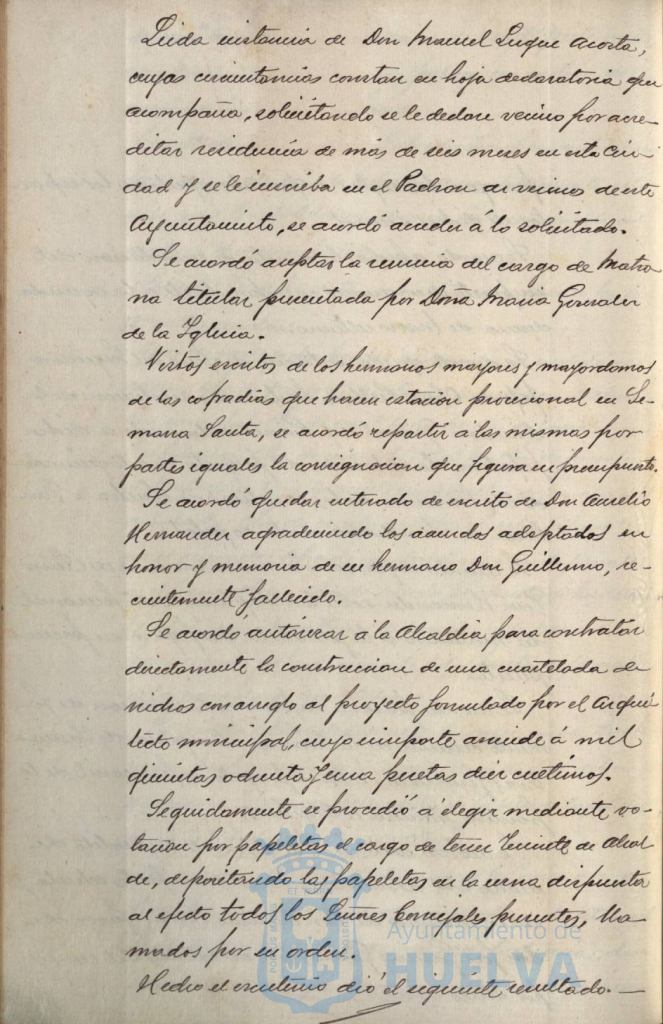 Leida instancia de Don Manuel Luque Acosta,
cuyas circunstancias constan en hoja declaratoria que
acompaña, solicitando se le declare vecino por acre-
ditar residencia de más de seis meses en esta Ciu-
dad y se le inscriba en el Padron de vecinos de este
Ayuntamiento, se acordó acceder á lo solicitado.
Se acordó aceptar la renuncia del cargo de Matro-
na titular presentada por Doña Maria Gonzalez
de la Iglesia.
Vistos escritos de los hermanos mayores y mayordomos
de las cofradias que hacen estacion procesional en Se-
mana Santa, se acordó repartir á las mismas por
partes iguales la consignacion que figura en presupuesto.
Se acordó quedar enterado de escrito de Don Aurelio
Hernandez agradeciendo los acuerdos adoptados en
honor y memoria de su hermano Don Guillermo, re-
cientemente fallecido.
Se acordó autorizar á la Alcaldia para contratar
directamente la construccion de una cuartelada de
nichos con arreglo al proyecto formulado por el Arqui-
tecto municipal, cuyo importe asciende á mil
quinientas ochenta y una pesetas diez centimos.
Seguidamente se procedió á elegir mediante vo-
tacion por papeletas el cargo de tercer Teniente de Alcal-
de, depositando las papeletas en la urna dispuesta
al efecto todos los Señores Concejales presentes, lla-
mados por su orden.
Hecho el escrutinio dió el siguiente resultado.—
Ayuntamiento de
HUELVA